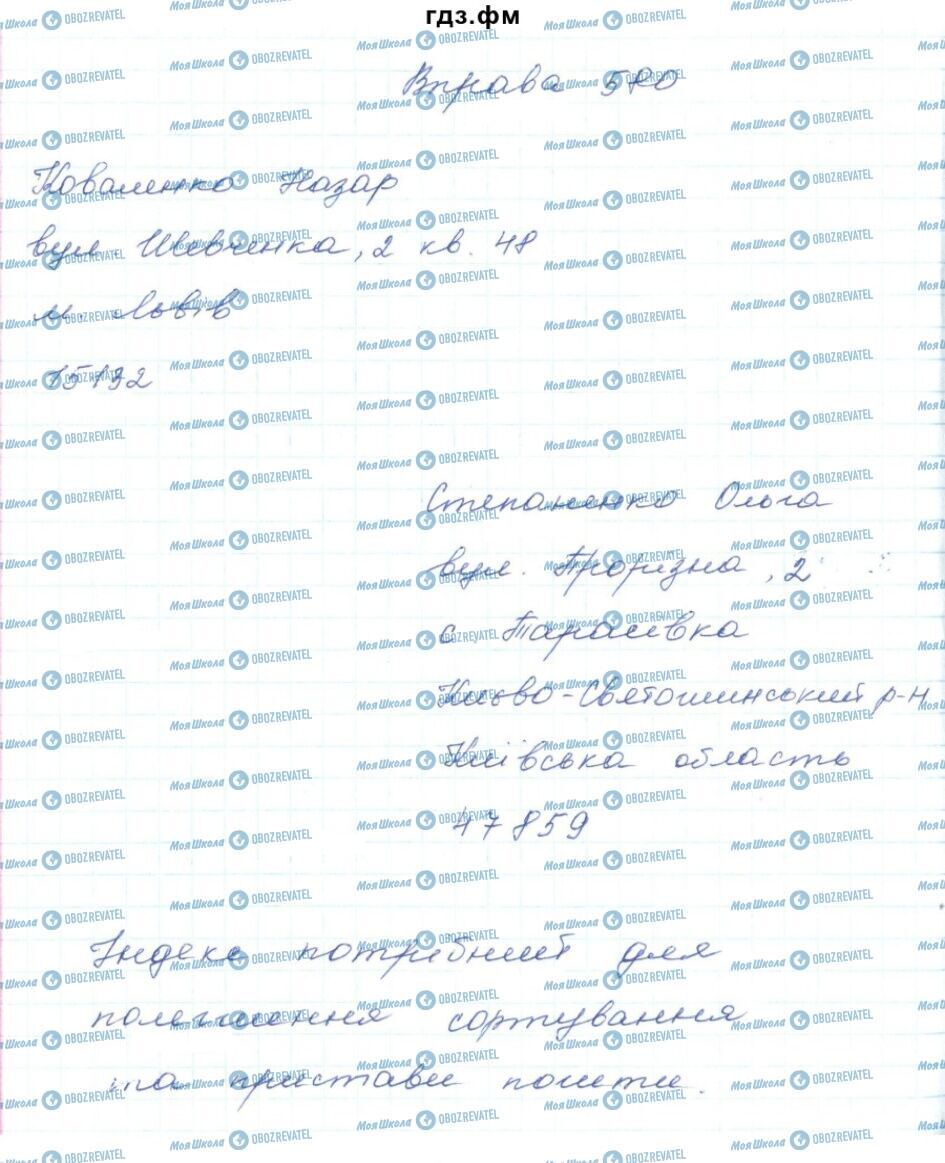 гдз.фм
Вправа 570
Коваленко Назар
вул. Шевченка, 2 кв. 48
м. Львів
15132
Степаненко Ольга
вул. Прорізна, 2
с. Тарасівка
Києво-Святошинський р-н
Київська область
47859
Індекс потрібний для
полегшення сортування
та пристави пошти.
МояШкола OBOZREVATEL